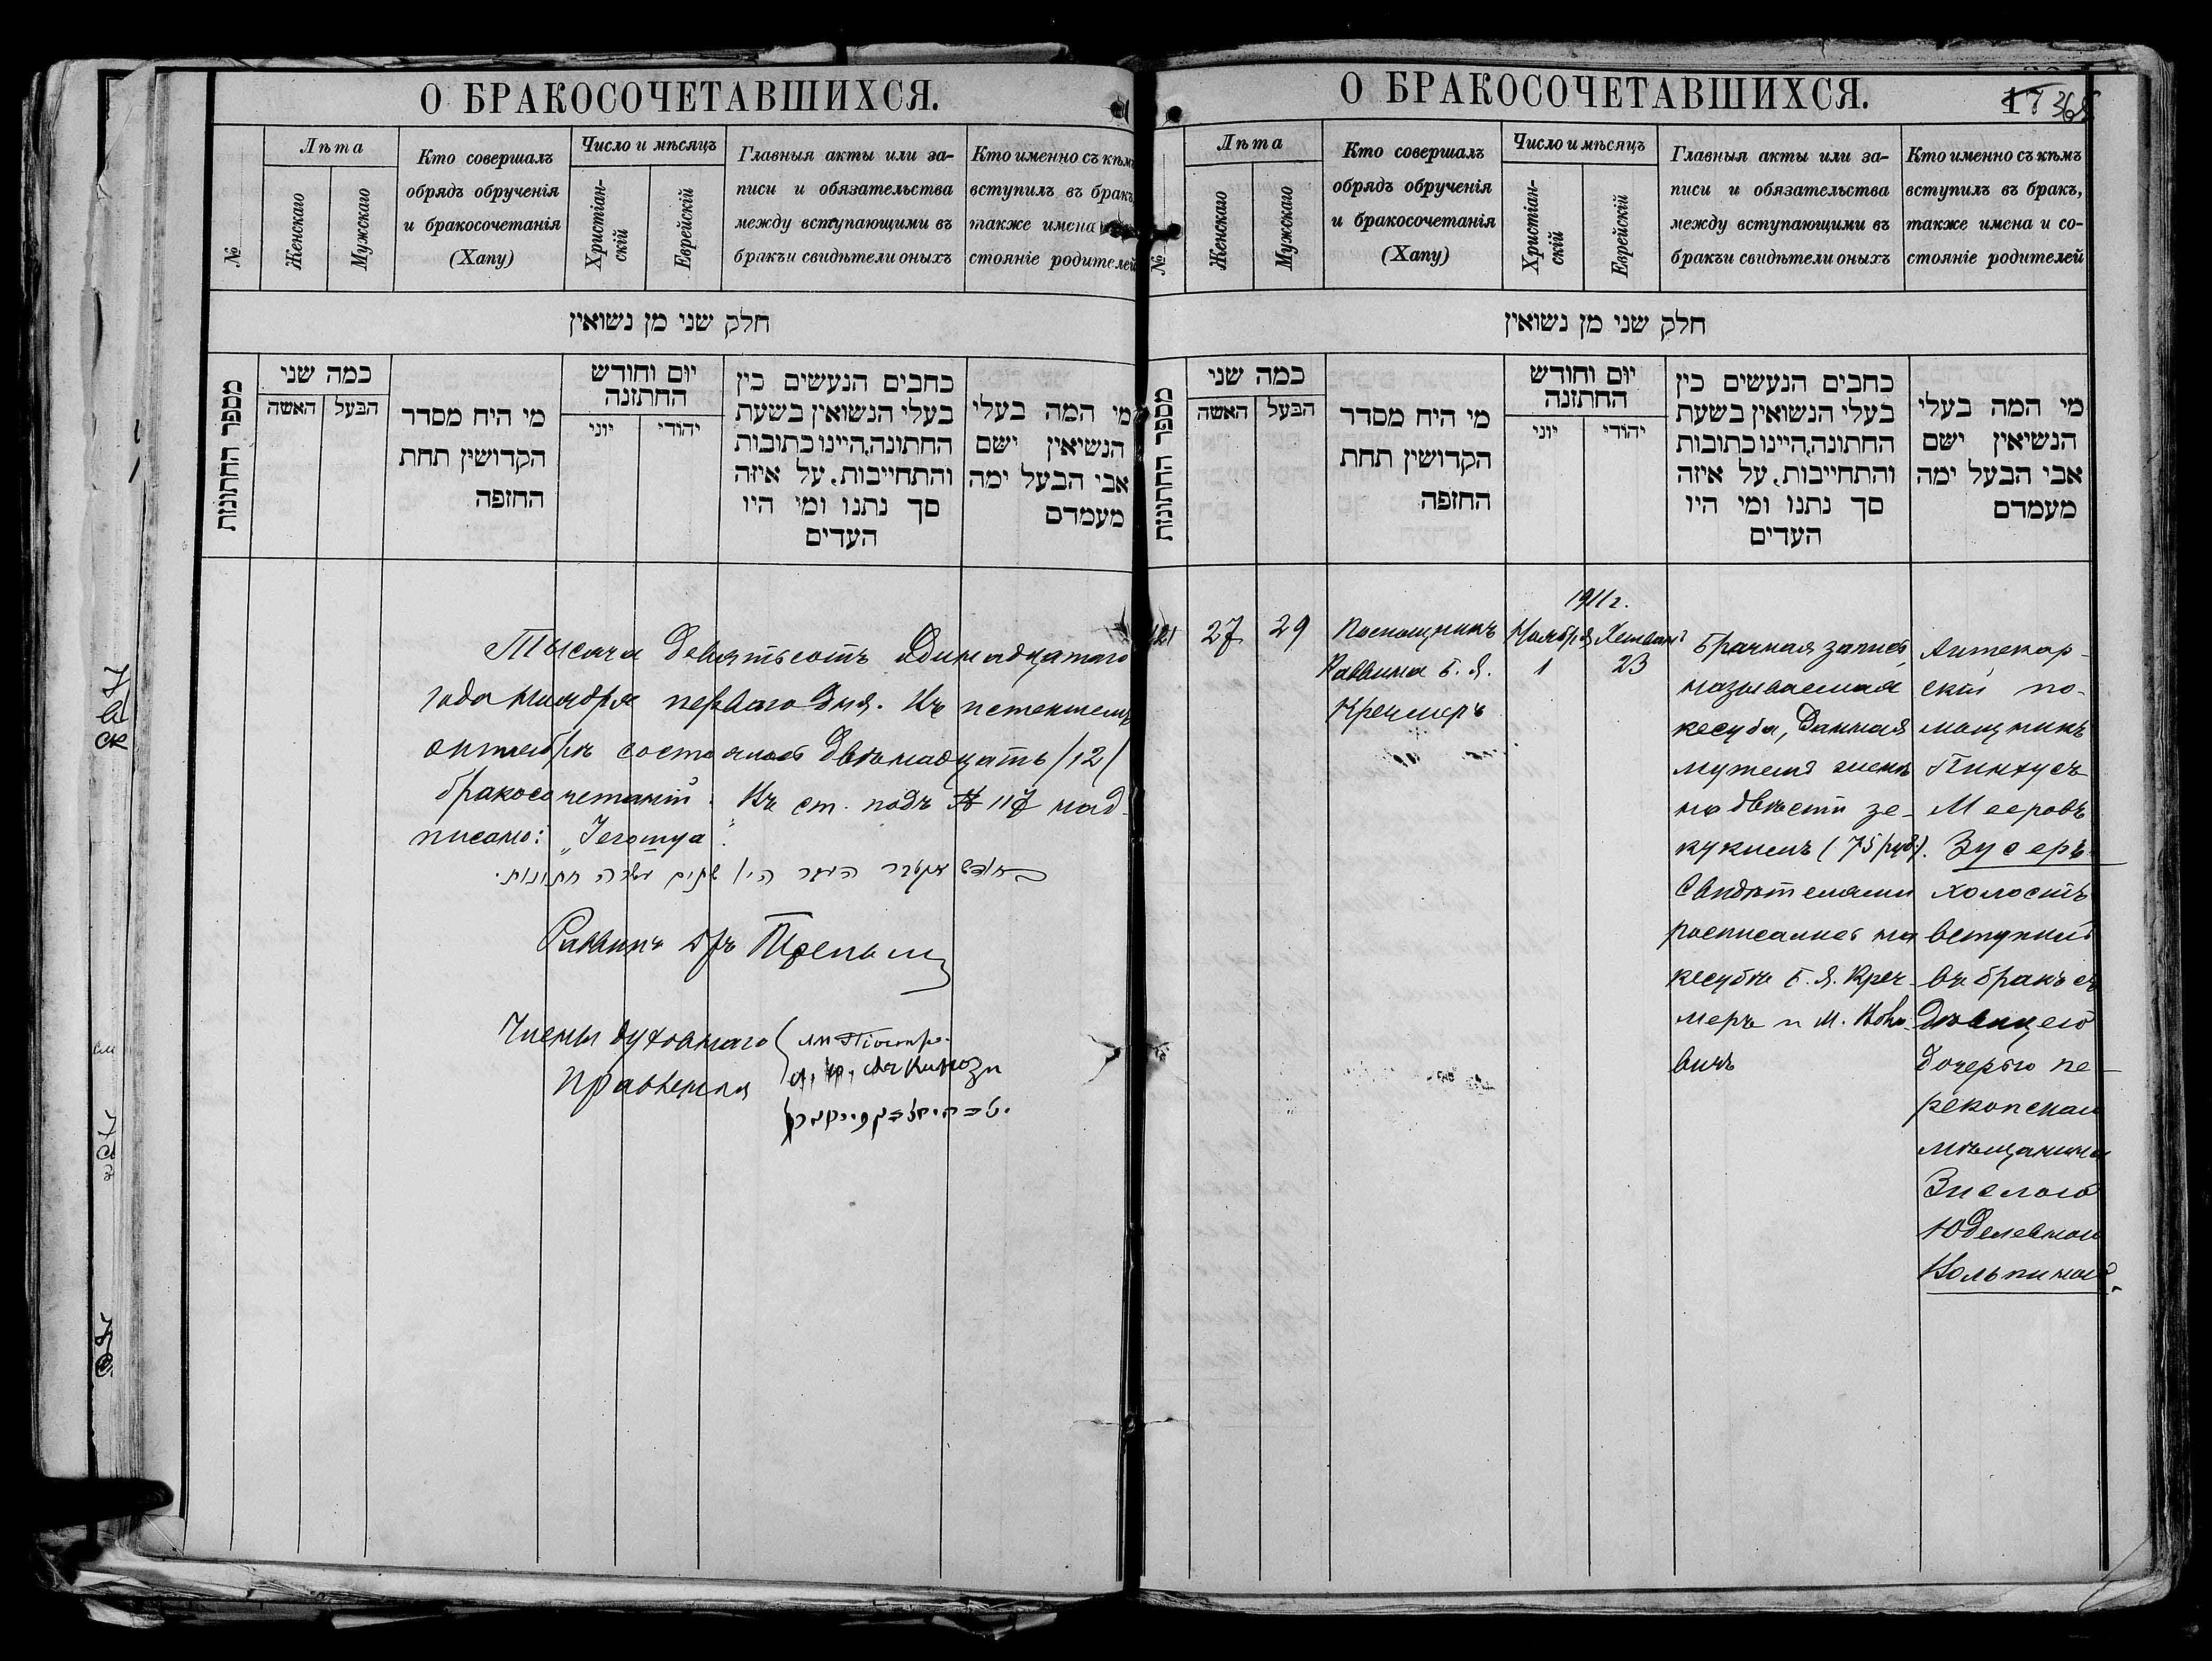 О БРАКОСОЧЕТАВШИХСЯ.
№
Лѣта
Женскаго
Мужскаго
Кто совершалъ
обрядъ обрученія
и бракосочетанія
(Хапу)
Число и мѣсяцъ
Христіан-
скій
Еврейскій
Главныя акты или за-
писи и обязательства
между вступающими въ
бракъи свидѣтели оныхъ
Кто именно съ кѣмъ
вступилъ въ бракъ,
также имена
стояніе родителей
חלק שני מן נשואין
מספר החתונות
כמה שני
האשה
הבעל
מי היח מסדר
הקדושין תחת
החופה
יום וחודש
החתונה
יוני
יהודי
כחבים הנעשים כין
בעלי הנשואין בשעת
החתונה,היינו כתובות
והתחייבות. על איזה
סך נתנו ומי היו
העדים
מי המה בעלי
הנשיאין ישם
אבי הבעל ימה
מעמדם
Тысяча девятьсотъ одинадцатаго
года ноября перваго дня. Въ истекшемъ
октябрѣ состоялось двѣнадцать /12/
бракосочетаній. Въ ст. подъ № 117 над-
писано: „Іегошуа".
בחודש אקטבר העבר היו שתים עשרה חתונות.
Раввинъ Др
Члены духовнаго
правленія
О БРАКОСОЧЕТАВШИХСЯ.
17 368
№
Лѣта
Женскаго
Мужскаго
Кто совершалъ
обрядъ обрученія
и бракосочетанія
(Хапу)
Число и мѣсяцъ
Христіан-
скій
Еврейскій
Главныя акты или за-
писи и обязательства
между вступающими въ
бракъи свидѣтели оныхъ
Кто именно съ кѣмъ
вступилъ въ бракъ,
также имена и со-
стояніе родителей
חלק שני מן נשואין
מספר החתונות
כמה שני
האשה
הבעל
מי היח מסדר
הקדושין תחת
החופה
יום וחודש
החתונה
יוני
יהודי
כחבים הנעשים כין
בעלי הנשואין בשעת
החתונה,היינו כתובות
והתחייבות. על איזה
סך נתנו ומי היו
העדים
מי המה בעלי
הנשיאין ישם
אבי הבעל ימה
מעמדם
121
27
29
Помощникъ
Раввина Б. Я.
Кречмеръ
1911 г.
Ноября
1
Хешванъ
23
Брачная запись,
называемая
кесуба, данная
мужемъ женѣ
на двѣсти зе-
кукимъ (75 руб.).
Свидѣтелями
росписались на
кесубѣ Б. Я. Креч-
меръ и М. Вове-
вичъ
Аптекар-
скій по-
мощникъ
Пинхусъ
Мееровъ
Зусеръ
холостъ
вступилъ
въ бракъ съ
дѣвицею
дочерью пе-
рекопскаго
мѣщанина
Знелого
Юделевной
Вольпиной.